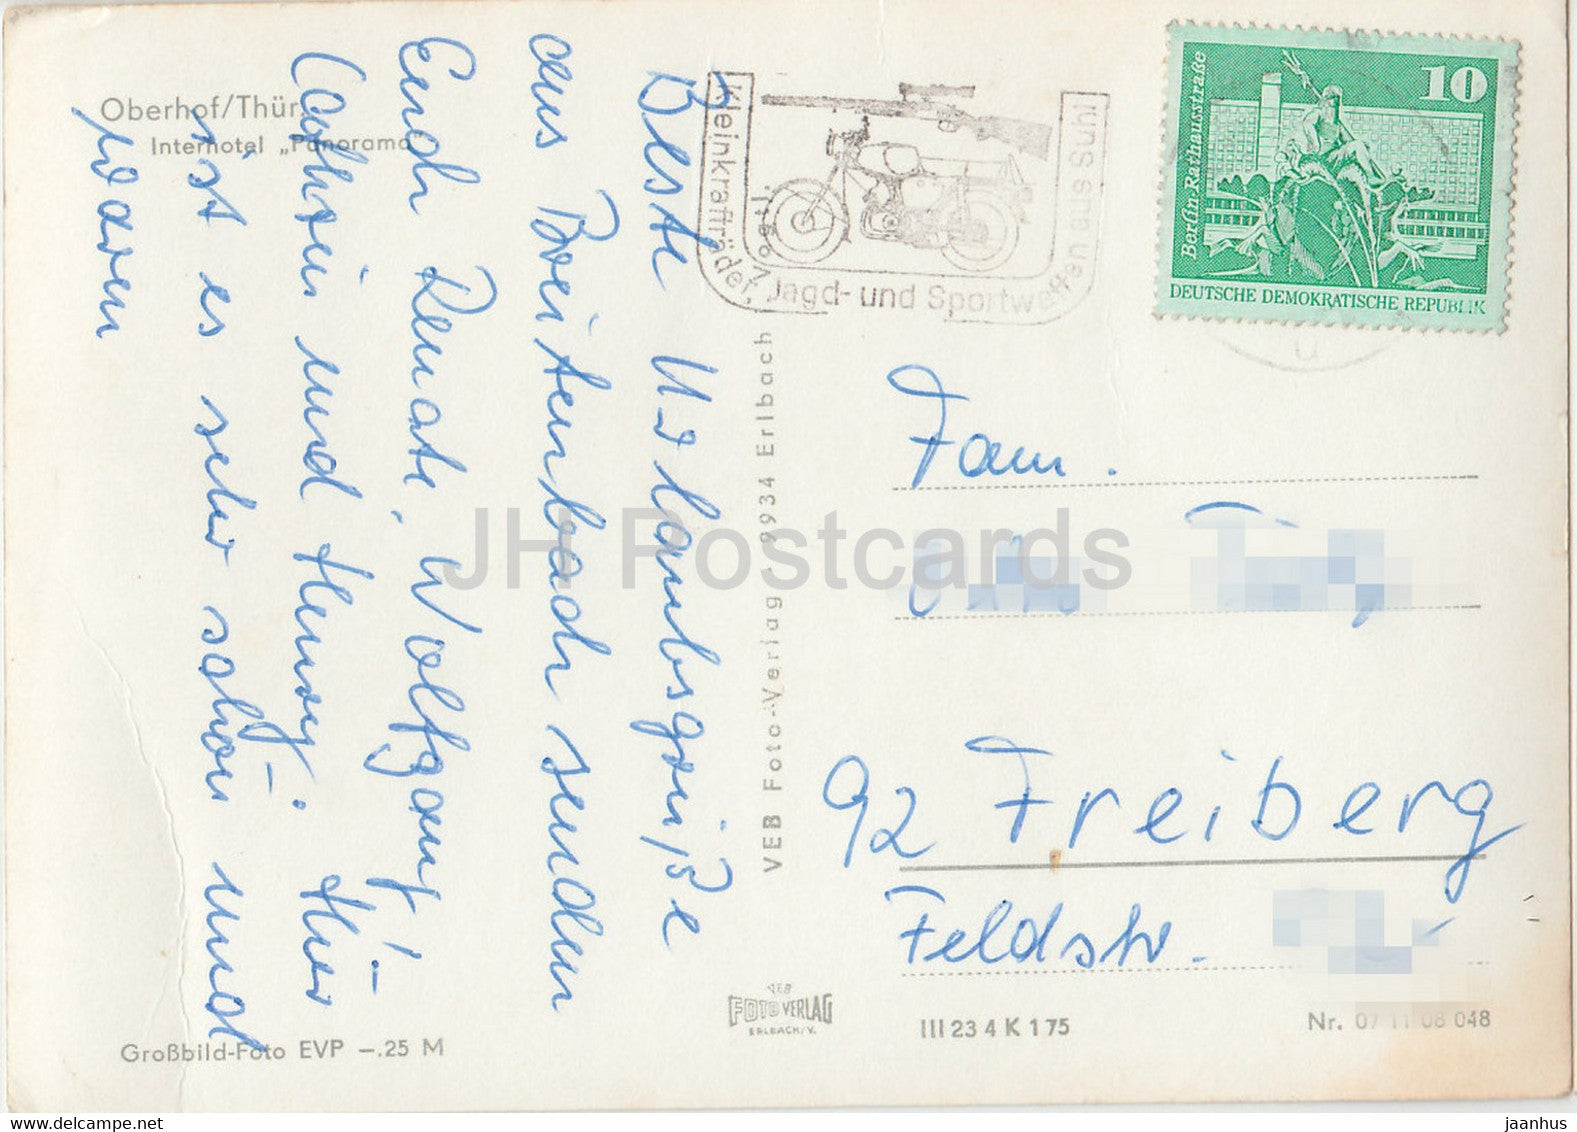 Oberhof/Thür.
Interhotel „Panorama“
Beste Urlaubsgrüße
aus Breitenbach senden
Euch Renate, Wolfgang!
Cathrin und Henry. Hier
ist es sehr schön und
warm
Kleinkrafträder, Jagd- und Sportwaffen aus Suhl
10
Berlin·Rathausstraße
DEUTSCHE DEMOKRATISCHE REPUBLIK
VEB Foto-Verlag · 9934 Erlbach Vogtl.
Fam.
92 Freiberg
Feldstr.
VEB
FOTO VERLAG
ERLBACH/V.
III 23 4 K 1 75
Nr. 07 11 08 048
Großbild-Foto EVP –.25 M
JH Postcards
www.delcampe.net
jaanhus